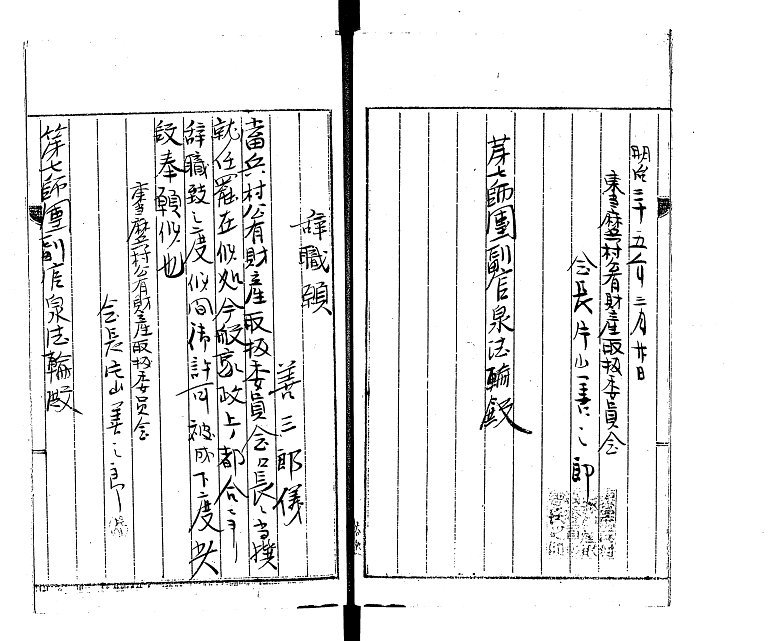 明治三十五年三月廿日
村公有財産取扱委員会
会長片山善三郎
第七師團副官泉法輪殿
辞職願
善三郎儀
當兵村公有財産取扱委員会長ニ当撰
就任罷在候処今般家政上ノ都合ニヨリ
辞職致シ度候間御許可被成下度此
段奉願候也
村公有財産取扱委員会
会長片山善三郎
第七師團副官泉法輪殿